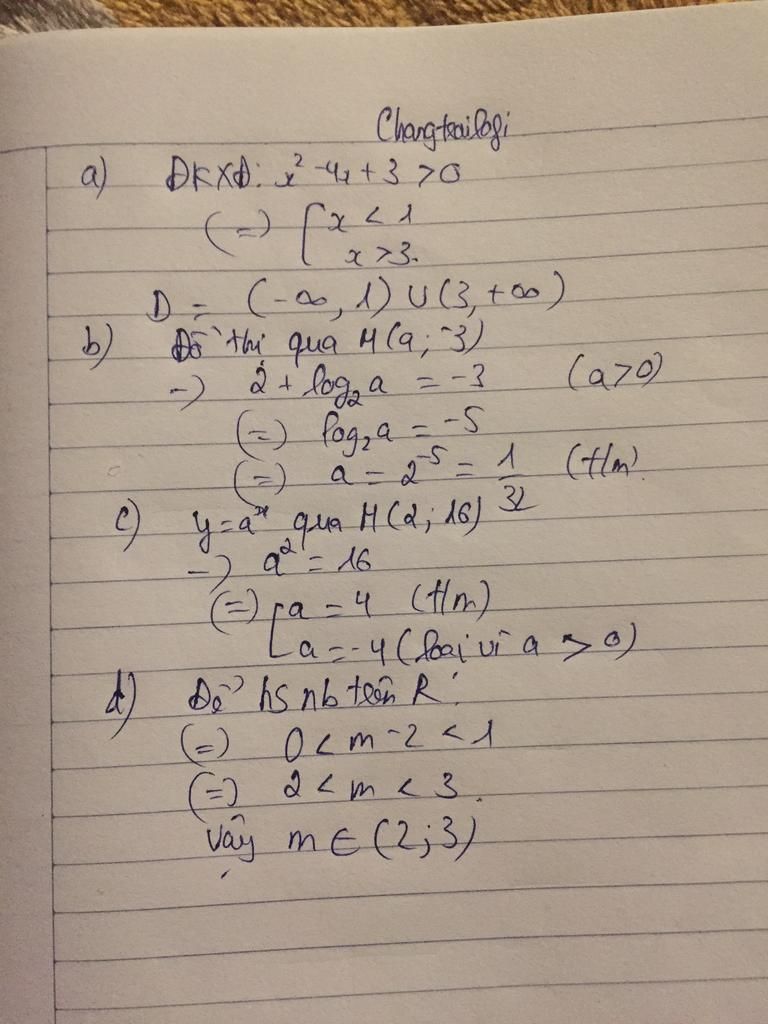 Changtrailogi
a) ĐKXĐ: x² - 4x + 3 > 0
(=) [ x < 1
x > 3.
D = (-∞, 1) ∪ (3, +∞)
b) Đồ thị qua M(a; -3)
-> 2 + log₂a = -3 (a>0)
(=) log₂a = -5
(=) a = 2⁻⁵ = 1/32 (t/m)
c) y = aˣ qua M(2; 16)
-> a² = 16
(=) [ a = 4 (t/m)
a = -4 (loại vì a > 0)
d) Để hs nb trên R:
(=) 0 < m - 2 < 1
(=) 2 < m < 3.
Vậy m ∈ (2; 3)